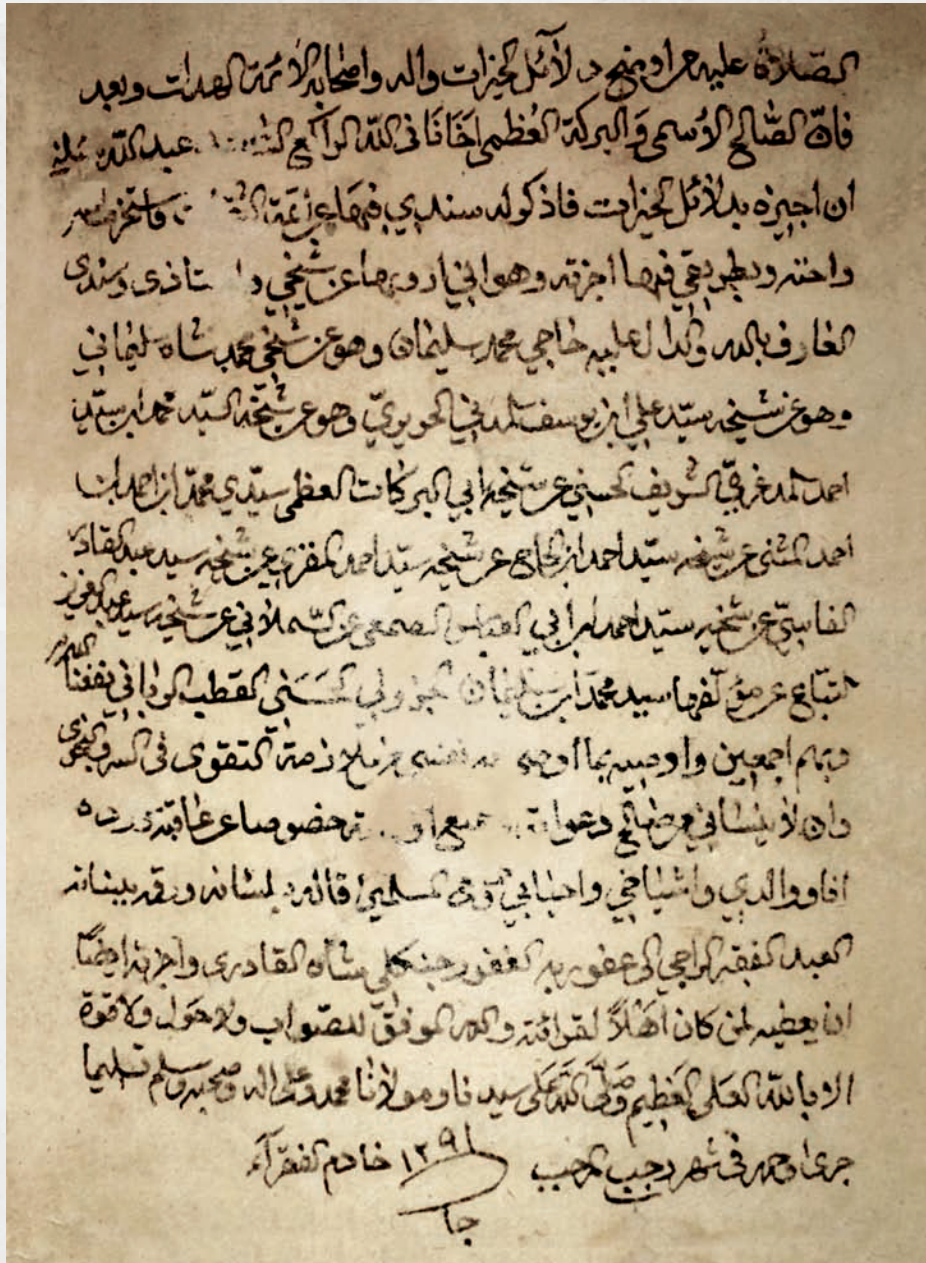 الصّلاةُ عليه حرا ومنح دلائل الخيرات واله واصحابه الائمة الهدات وبعد
فانّ الصّالح الاسمى وَالبركة العُظمى اخانا فى اللّه الراكع عبد اللّه
ان اجيزه بدلائل الخيرات فاذكر له سندي فيها
وبطريقي فيها اجزته وهو اني ارويها عن شيخي و ستاذى وسندى
العارف بالله والدال عليه حاجي محمد سليمان وهو عن شيخي محمد شاه سليماني
وهو عن شيخه سيّد علي ابن يوسف المدني الحريريّ وهو عن شيخه السيّد محمد ابن سيّد
احمد المدغريّ الشريف الحسني عن شيخه ابي البركات العظمى سيّدي محمّد ابن احمد ابن
احمد المثنى عن شيخه سيّد احمد ابن الحاج عن شيخه سيّد احمد المقري عن شيخه سيد عبد القادر
الفاسيّ عن شيخه سيّد احمد ابن ابي العباس الصمعى عن السّملالي عن شيخه سيد عبد العزيز
التبّاع عن مؤلّفها سيد محمّد ابن سليمان الجزولي الحَسَني القطب نفعنا
وبهم اجمعين واوصيه بما اوصي به نفسي من ملازمة التقوى فى السر والنجوى
وان لا ينساني من صالح دعواته خصوصا
انا ووالدي واشياخي واحبابي المسلمين قاله بلسانه ورقمه ببنانه
العبد الفقير الراجي الى عفو ربه الغفور شاه القادرى واجزته ايضًا
ان يعطيه لمن كان اَهْلاً لقرائته والله الموفّق للصّواب ولا حَول ولا قوة
الا باللّه العَلى العَظيم وَصَلّى اللّه عَلى سيدنا ومولانا محمد وعلى اله وصحبه وسلم تسليما
جرى وحرر فى شهر رجب المرجب ١٢٩١ خادم الفقرآء